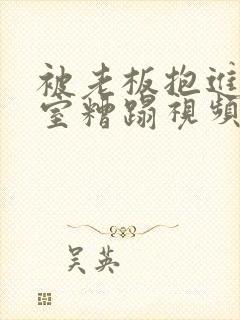 被老板抱進
室糟蹋視頻
吴英